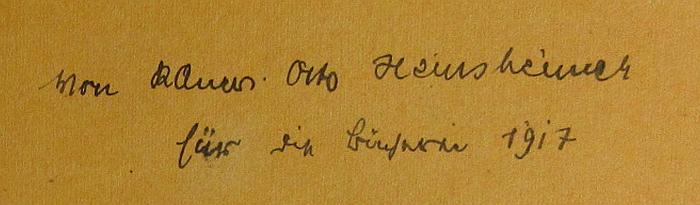 Von Otto Heinsheimer
für die Bücherei 1917